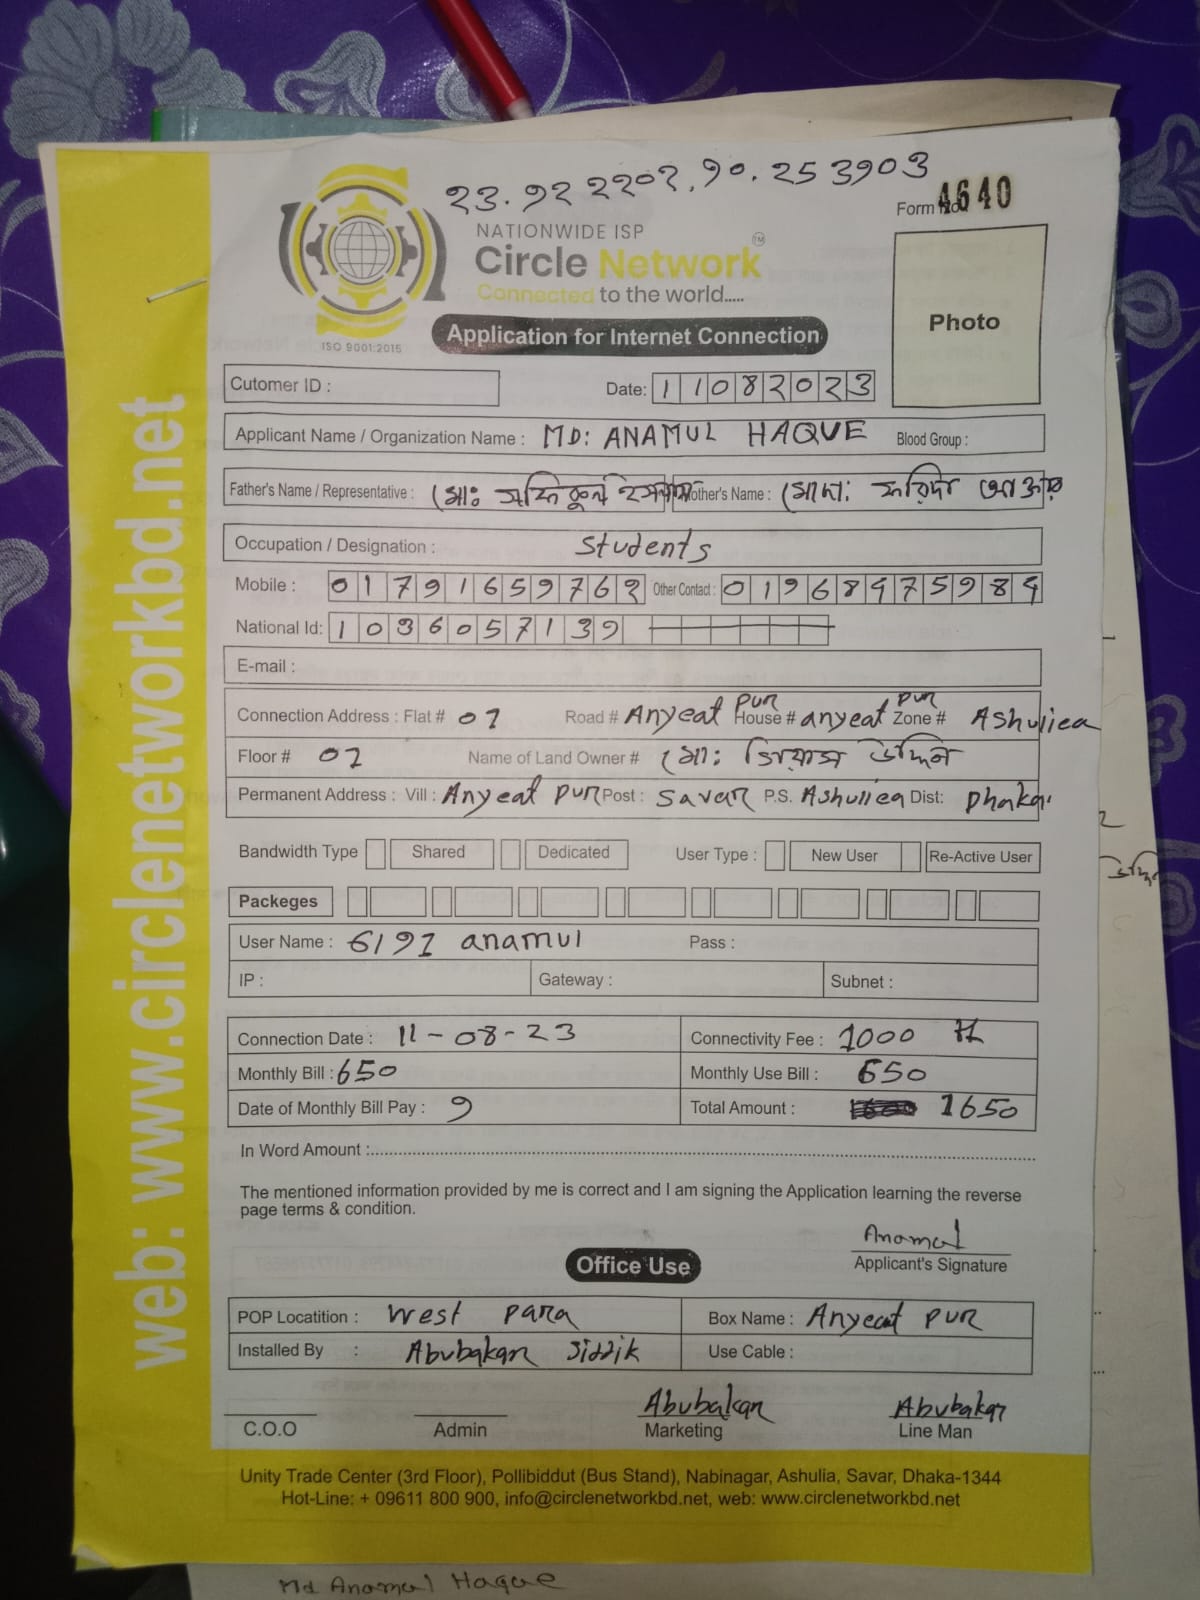 23.92 2202.90.253903
Form No. 4640
NATIONWIDE ISP
Circle Network TM
Connected to the world.....
ISO 9001:2015
Application for Internet Connection
Photo
Cutomer ID :
Date: 11082023
Applicant Name / Organization Name : MD: ANAMUL HAQUE Blood Group :
Father's Name / Representative : মোঃ সফিকুল ইসলাম Mother's Name : মোসা: ফরিদা আক্তার
Occupation / Designation : Students
Mobile : 01791659762 Other Contact :
National Id: 1036057139
E-mail :
Connection Address : Flat # 01 Road # Anyeat pur House # anyeat pur Zone # Ashuliea
Floor # 02 Name of Land Owner # মো: গিয়াস উদ্দিন
Permanent Address : Vill : Anyeat pur Post : Savar P.S. Ashuliea Dist: Dhaka
Bandwidth Type Shared Dedicated User Type : New User Re-Active User
Packeges
User Name : 6191 anamul Pass :
IP : Gateway : Subnet :
Connection Date : 11-08-23 Connectivity Fee : 1000 Tk
Monthly Bill : 650 Monthly Use Bill : 650
Date of Monthly Bill Pay : 9 Total Amount : 1650
In Word Amount :
The mentioned information provided by me is correct and I am signing the Application learning the reverse
page terms & condition.
Anamul
Applicant's Signature
Office Use
POP Locatition : West para Box Name : Anyeat pur
Installed By : Abubakar Siddik Use Cable :
Abubakar Abubakar
C.O.O Admin Marketing Line Man
Unity Trade Center (3rd Floor), Pollibiddut (Bus Stand), Nabinagar, Ashulia, Savar, Dhaka-1344
Hot-Line: + 09611 800 900, info@circlenetworkbd.net, web: www.circlenetworkbd.net
web: www.circlenetworkbd.net
Md Anamul Haque